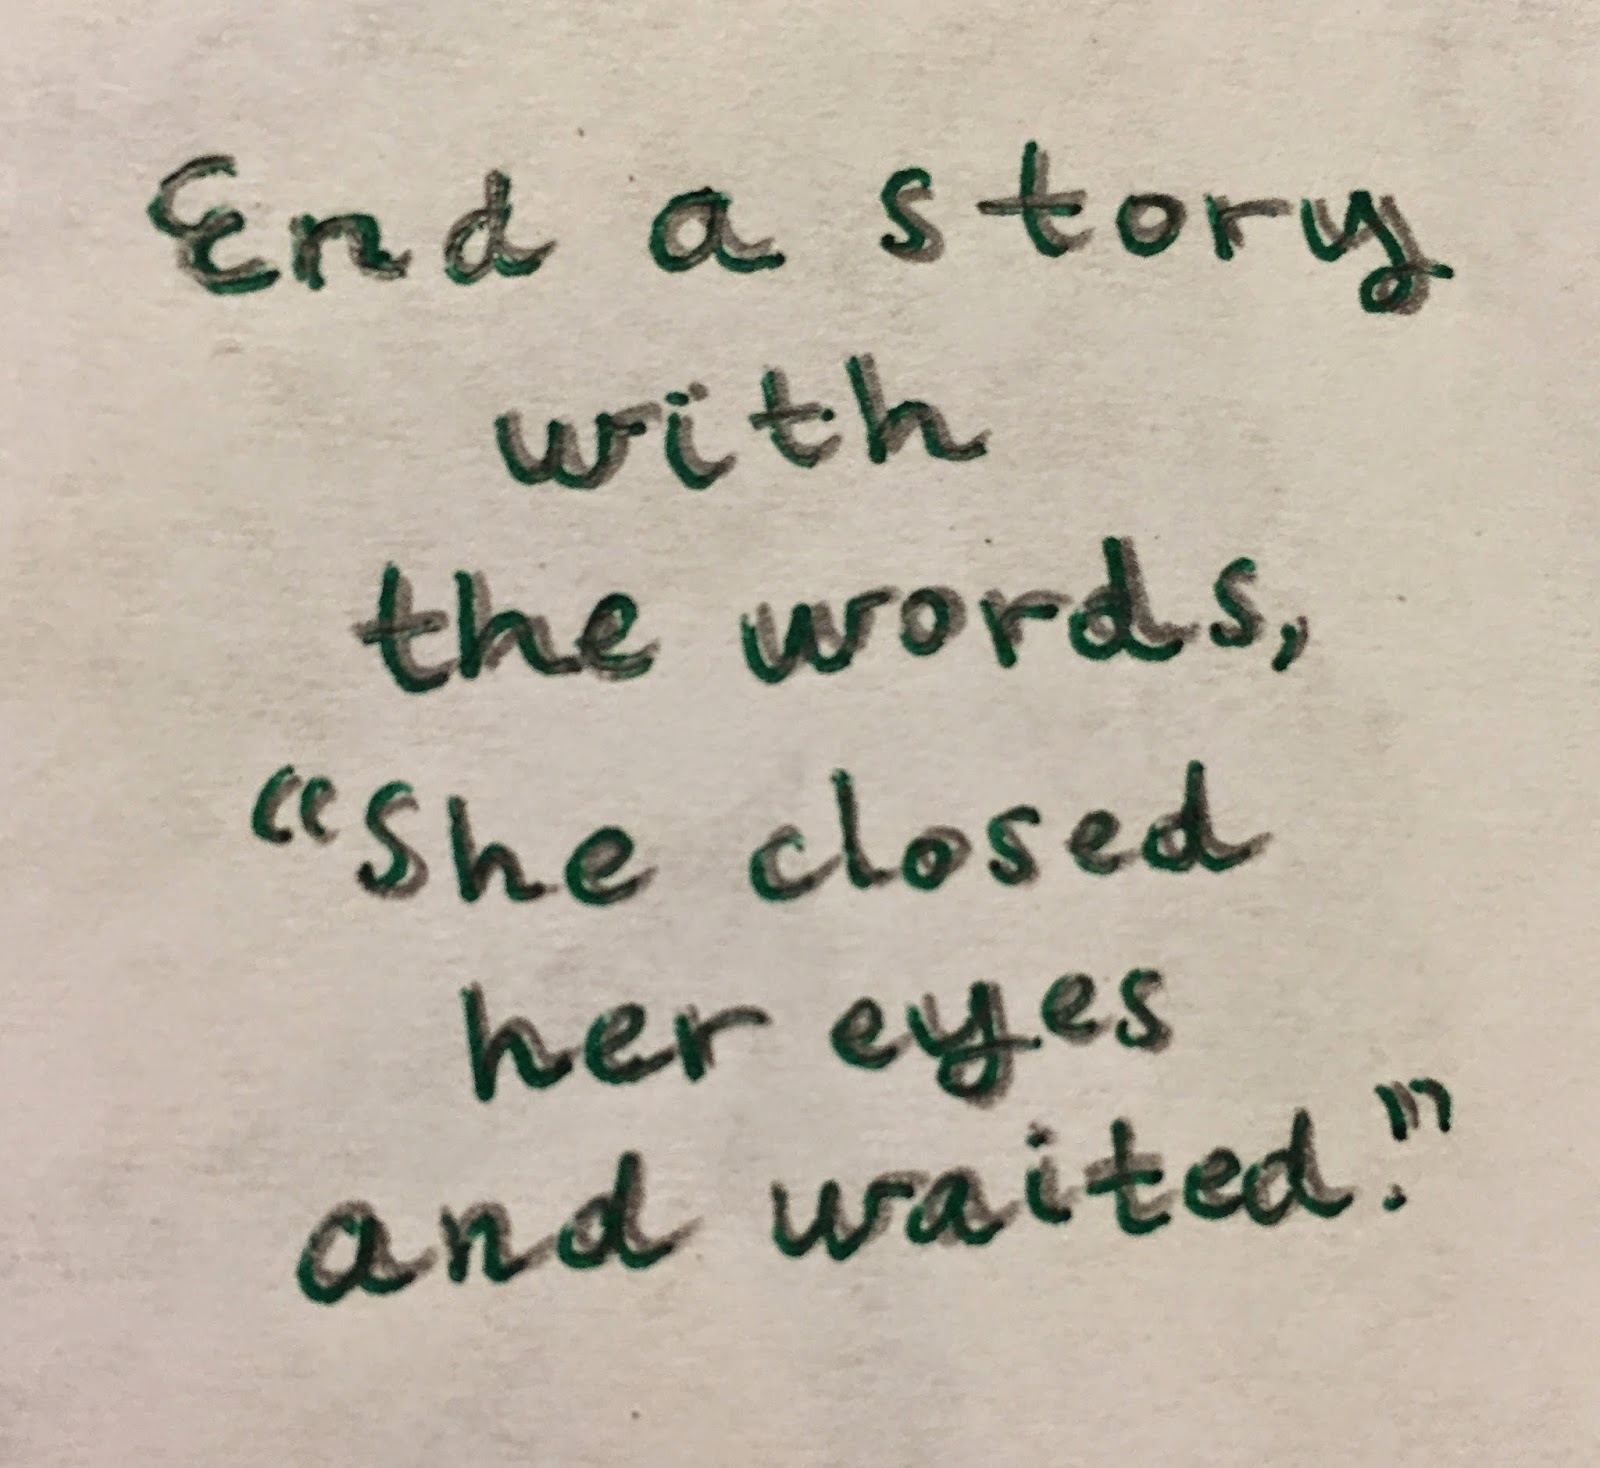 End a story
with
the words,
“She closed
her eyes
and waited.”